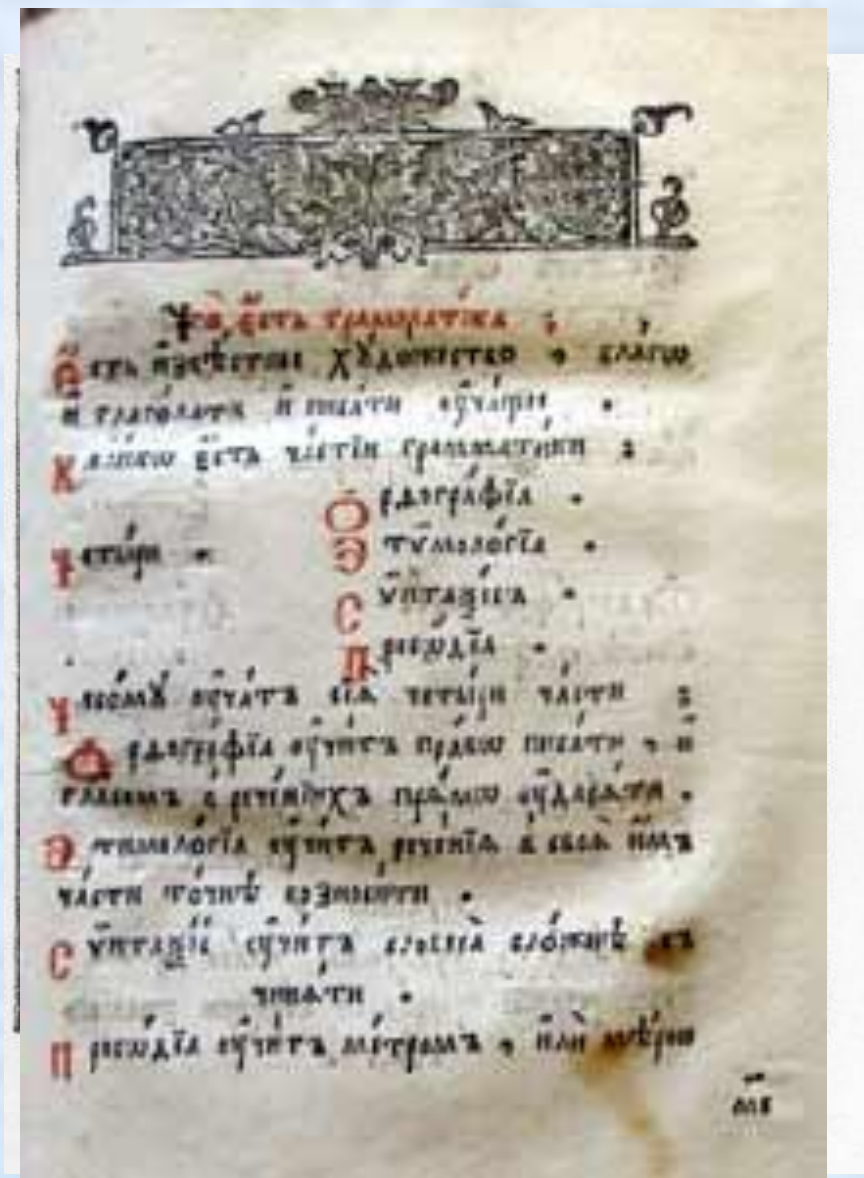 Что̀ є҆́сть грамма́тїка ;
Є҆́сть и҆звѣ́стное хꙋдо́жество , бла́гѡ
и҆ глаго́лати и҆ писа́ти ᲂу҆ча́щее .
Коли́кѡ є҆́сть ча́стїй грамма́тїки ;
Ѻ҆рѳогра́фїа .
Четы́ри . Э҆тѷмоло́гїа .
Сѷ́нтаѯїсъ .
Просѡ́дїа .
Чесомꙋ̀ ᲂу҆ча́тъ сїѧ̑ четы́ри ча̑сти ;
Ѻ҆рѳогра́фїа ᲂу҆чи́тъ пра́вѡ писа́ти , и҆
гла́сомъ в̾ рече́нїихъ пра́мѡ ᲂу҆дарѧ́ти .
Э҆тимоло́гїа ᲂу҆чи́тъ рече́нїѧ в̾ своѧ̑ и҆̀мъ
ча̑сти то́чнѣ возноси́ти .
Сѷ́нтаѯїс ᲂу҆чи́тъ словеса̀ сло́жнѣ съ
чинѧ́ти .
Просѡ́дїа ᲂу҆чи́тъ ме́тромъ , и҆лѝ мѣ́рою